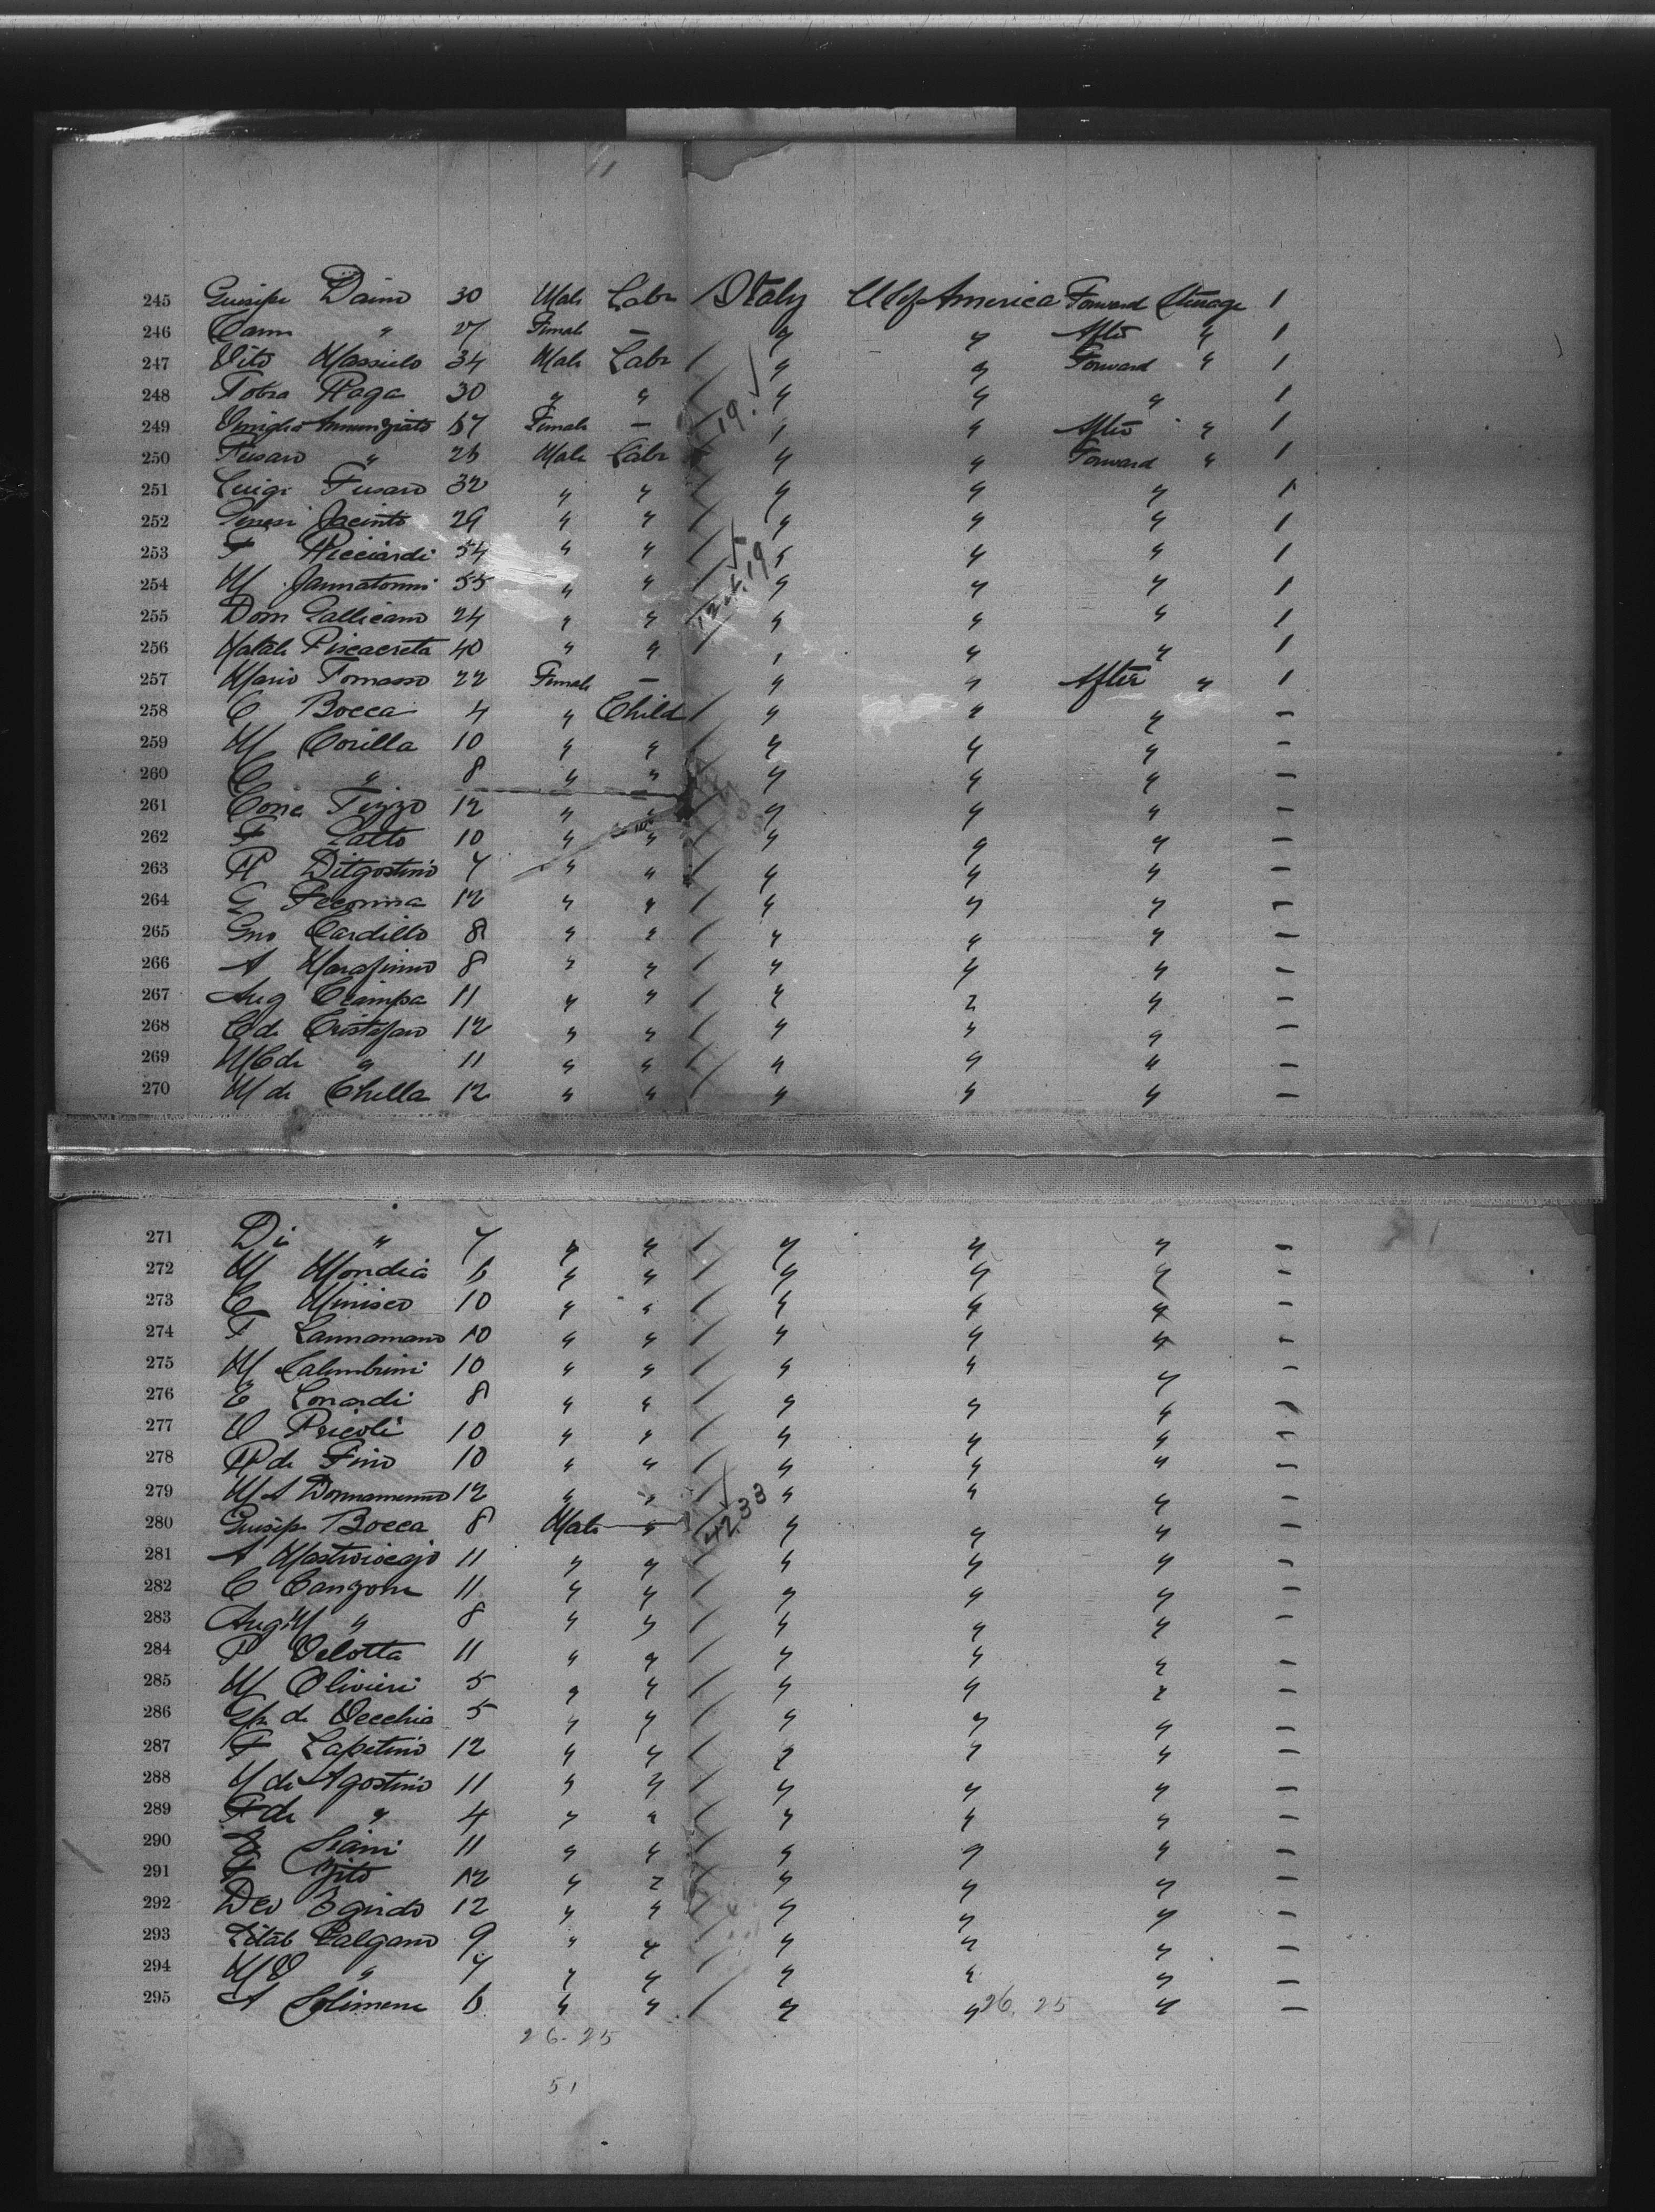 245 Guisepe Daino 30 Male Labr Italy U S of America Forward Steerage 1
246 Carm " 27 Female — " " After " 1
247 Vito Massielo 34 Male Labr / " " Forward " 1
248 Tobra Raga 30 " " / " " " 1
249 Annunziato 57 Female — / " " After " 1
250 Fusaro " 26 Male Labr " " Forward " 1
251 Luigi Fusaro 32 " " / " " " 1
252 Jacinto 29 " " / " " " 1
253 F Ricciardi 54 " " / " " " 1
254 M Jannatonni 55 " " / " " " 1
255 Dom Gallicano 24 " " / " " " 1
256 Natale Piscacreta 40 " " / " " " 1
257 Mario Tomasso 22 Female — " " After " 1
258 C Bocca 4 " Child / " " " —
259 M Corilla 10 " " / " " " —
260 C " 8 " " " " " —
261 Tizzo 12 " " / " " " —
262 F Gatto 10 " " / " " " —
263 R Ditgostino 7 " " / " " " —
264 G Pecorina 12 " " / " " " —
265 Gno Cardillo 8 " " / " " " —
266 A Marafinno 8 " " / " " " —
267 Aug Ciampa 11 " " / " " " —
268 C di Cristofaro 12 " " / " " " —
269 M C di " 11 " " / " " " —
270 M di Chella 12 " " / " " " —
271 Di " 7 " " / " " " —
272 M Mondia 6 " " / " " " —
273 C Minisco 10 " " / " " " —
274 F Lannamano 10 " " / " " " —
275 M Calumbrini 10 " " / " " " —
276 E Lonardi 8 " " / " " " —
277 V Pricoli 10 " " / " " " —
278 R di Fino 10 " " / " " " —
279 M A Donnamunno 12 " " / " " " —
280 Guisepe Bocca 8 Male " / 42.33 " " " —
281 A 11 " " / " " " —
282 C Canzone 11 " " / " " " —
283 Aug M " 8 " " / " " " —
284 P Velotta 11 " " / " " " —
285 M Olivieri 5 " " / " " " —
286 di Vecchia 5 " " / " " " —
287 F Lapetino 12 " " / " " " —
288 M di Agostino 11 " " / " " " —
289 F di " 4 " " / " " " —
290 E Siani 11 " " / " " " —
291 F Zito 12 " " / " " " —
292 Deo Eguido 12 " " / " " " —
293 Galgano 9 " " / " " " —
294 M V " 7 " " / " " " —
295 A Solimene 6 " " / " " 26. 25 " —
26-25
51